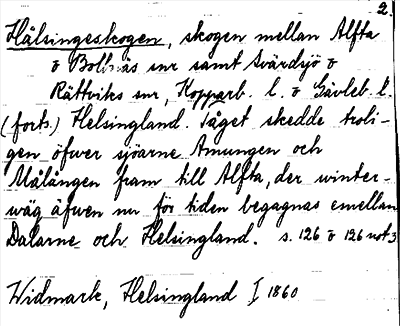 2.
Hälsingeskogen, skogen mellan Alfta
o Bollnäs snr samt Svärdsjö o
Rättviks snr, Kopparb. l. o Gävleb. l.
(forts.) Helsingland. Tåget skedde troli-
gen öfwer sjöarne Amungen och
Målången fram till Alfta, der winter-
wäg äfwen nu för tiden begagnas emellan
Dalarne och Helsingland. s. 126 o 126 not 3
Widmark, Helsingland I 1860